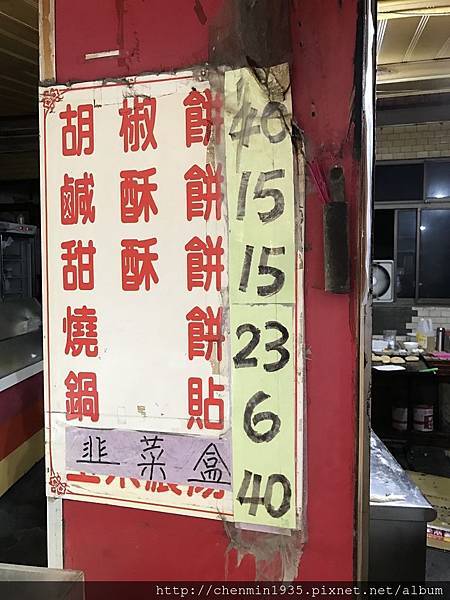 胡椒餅 40
鹹酥餅 15
甜酥餅 15
燒餅 23
鍋貼 6
韭菜盒 40
http://chenmin1935.pixnet.net/album